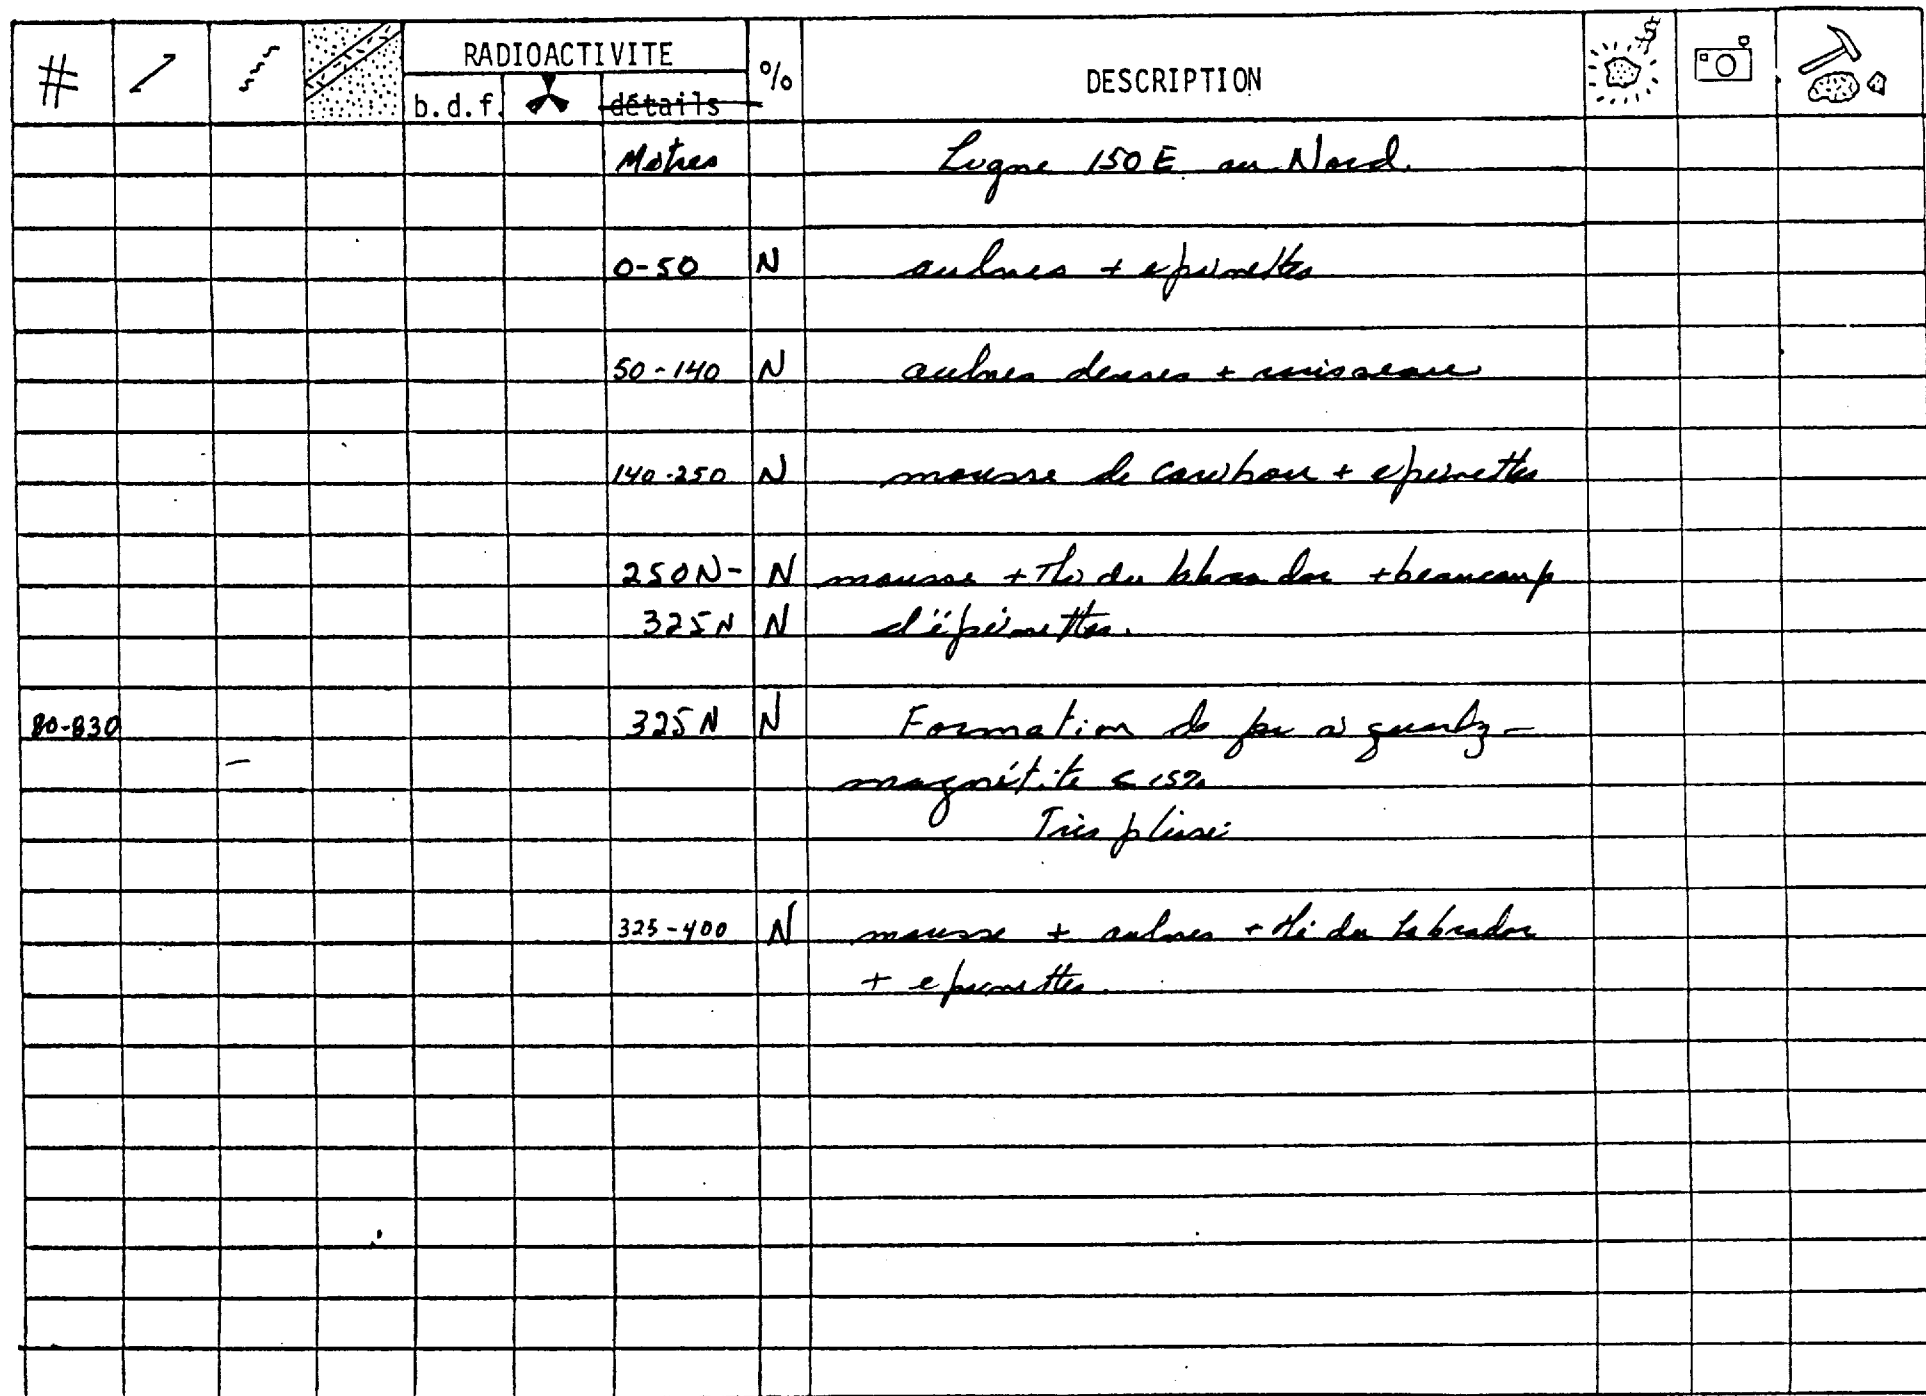 # RADIOACTIVITE % DESCRIPTION
b.d.f. détails
Mètres Ligne 150 E au Nord.
0-50 N aulnes + epinettes
50-140 N aulnes denses + ruisseau
140-250 N mousse de caribou + epinettes
250N- N mousse + Thé du labrador + beaucoup
325N N d'épinettes.
80-830 325 N N Formation de fer à quartz-
magnétite < 15%
Très plissé
325-400 N mousse + aulnes + thé du Labrador
+ epinettes.